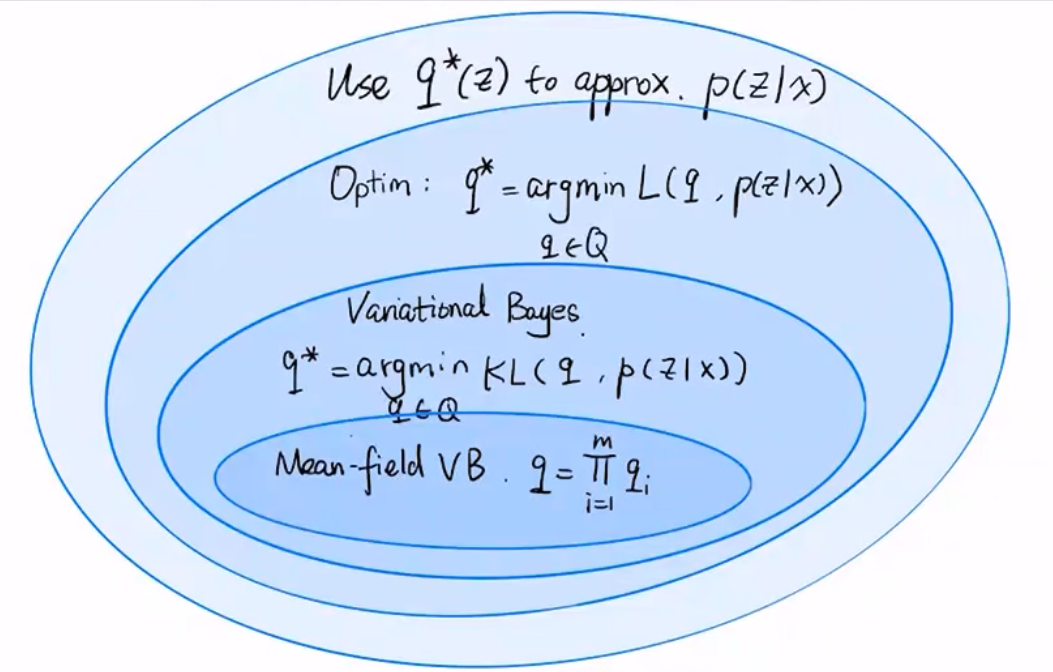 Use q*(z) to approx. p(z|x)
Optim: q* = argmin L(q, p(z|x))
q∈Q
Variational Bayes.
q* = argmin KL(q, p(z|x))
q∈Q
Mean-field VB. q = ∏ᵢ₌₁ᵐ qᵢ